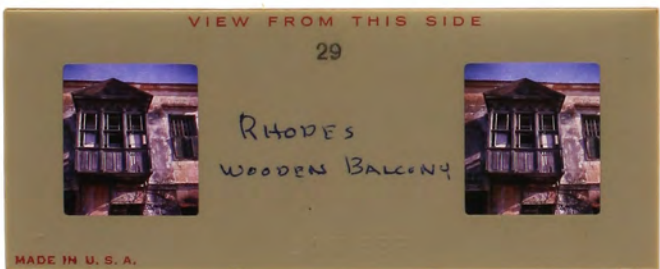 VIEW FROM THIS SIDE
29
RHODES
WOODEN BALCONY
MADE IN U. S. A.